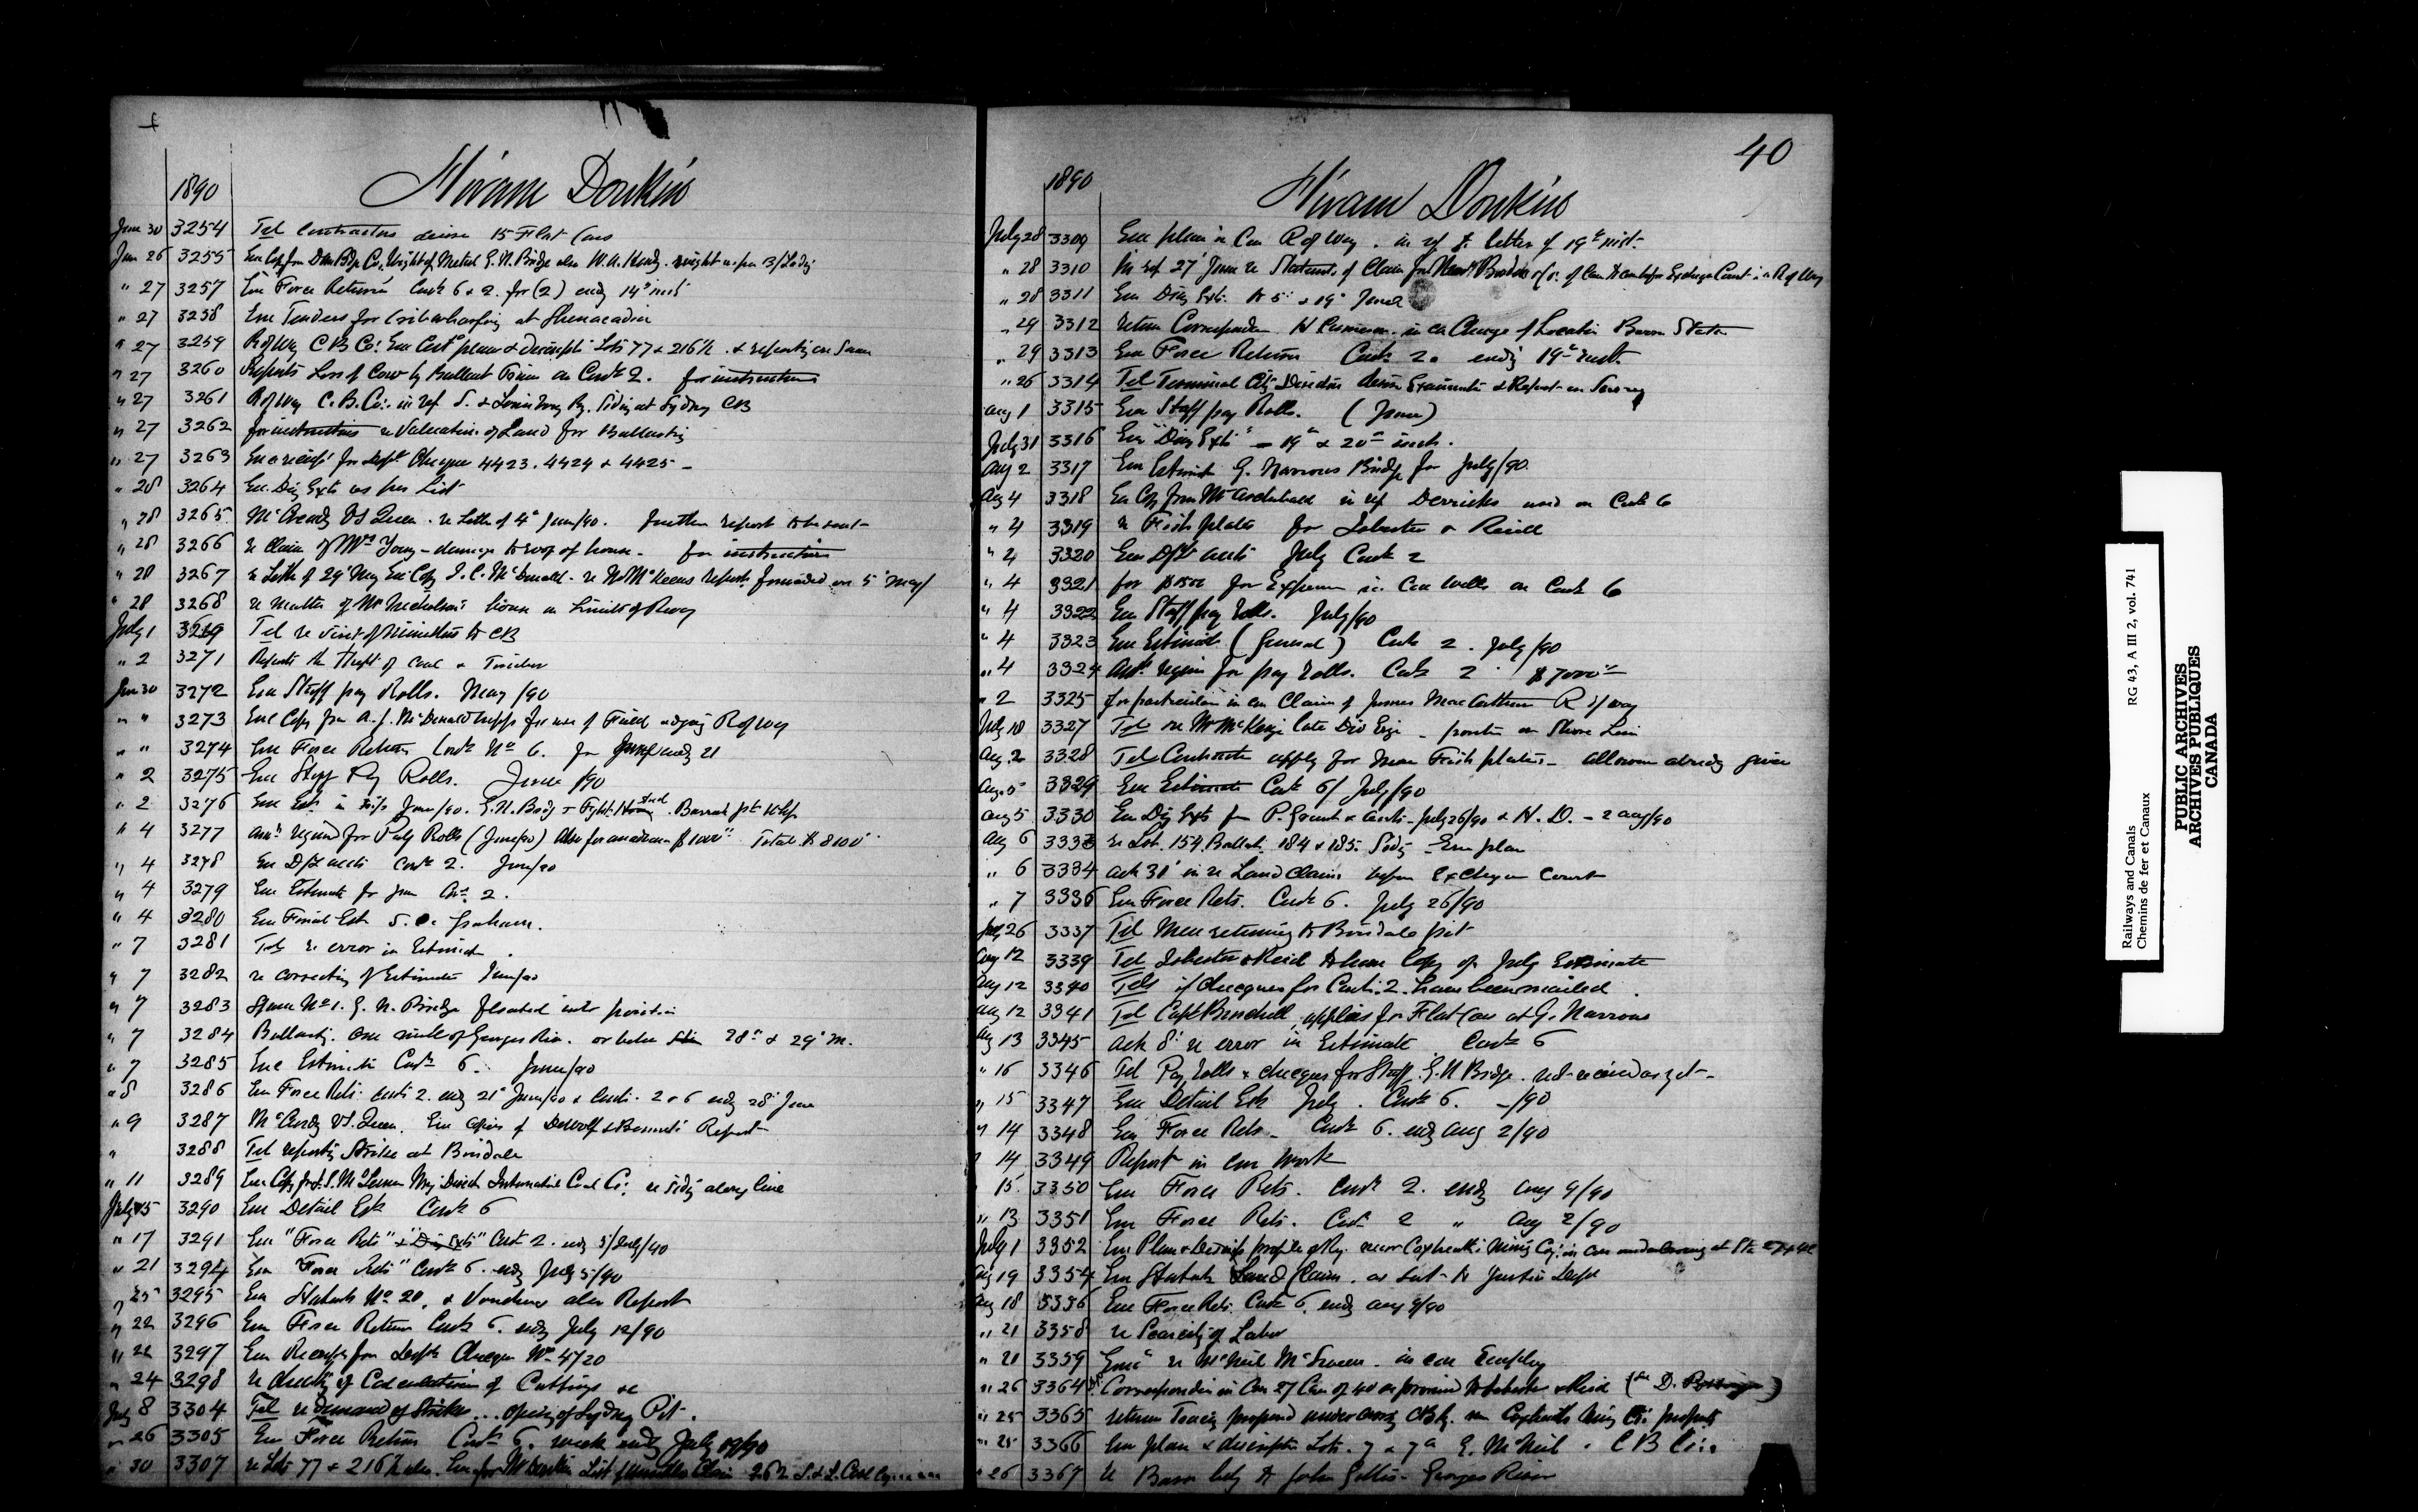 1890
Hiram Donkin
June 30 3254 Tel Contractors desire 15 Flat Cars
Jun 26 3255 Enc Copy from Dom Bdge Co, Weight of Metal G. N. Bridge also W. A. Hendy. weight as per B/Lading
" 27 3257 Enc Force Returns Contr 6 & 2. for (2) endg 14" inst
" 27 3258 Enc Tenders for Cribwharfing at Shenacadie
" 27 3259 R of Way C B Co: Enc Cert plan & descripti Lots 77 & 216 ½ & reporting on Same
" 27 3260 Reports Loss of Cow by Ballast Train on Contr 2. for instructions
" 27 3261 R of Way C. B. Co:. in ref S. & Louisburg Ry. Siding at Sydney CB
" 27 3262 for instructions re Valuation of Land for Ballasting
" 27 3263 Enc receipt for Dept Cheque 4423. 4424 & 4425 -
" 28 3264 Enc. Diary Exts as per List
" 28 3265 McCready Vs Queen. re Letter of 4" June/90. further report to be sent
" 28 3266 re Claim of Mrs Young - damage to roof of house. for instructions
" 28 3267 re Letter of 29" May Enc Copy J. C. McDonald. re McKeens report forwarded on 5" May/
" 28 3268 re Matter of Mr Nicholson's house on Limits of Rway
July 1 3269 Tel re visit of Minister to CB
" 2 3271 Reports the theft of Coal & Timber
Jun 30 3272 Enc Staff pay Rolls. May /90
" " 3273 Enc Copy from A. J. McDonald for use of Field adjoing R of Way
" " 3274 Enc Force Return Contr No 6. for June endg 21
" 2 3275 Enc Staff Pay Rolls. June /90
" 2 3276 Enc Ests in June/90. G. N. Bridge
" 4 3277 Amt required for Pay Rolls (June/90) Also for an advance $1000" Total $8100"
" 4 3278 Enc accts Contr 2. June/90
" 4 3279 Enc Estimate for June Con. 2.
" 4 3280 Enc Final Est S. Graham.
" 7 3281 Tels re error in Estimate
" 7 3282 re correcting of Estimates June/90
" 7 3283 Span No 1. G. N. Bridge floated into position
" 7 3284 Ballasting. one mile of Georges River. or between 28" & 29" M.
" 7 3285 Enc Estimate Contr 6. June/90
" 8 3286 Enc Force Rets. Contr 2. endg 21" June/90 & Contr. 2 & 6 endg 28" June
" 9 3287 McCready VS. Queen. Enc copies of Report
" 3288 Tel reporting Strike at Boisdale
" 11 3289 Enc Copy Mng Direct International Coal Co; re Siding along line
July 15 3290 Enc Detail Est Contr 6
" 17 3291 Enc "Force Rets" Contr 2. endg 5/July/90
" 21 3294 Enc "Force Rets" Contr 6. endg July 5/90
" 25 3295 Enc Statemts No 20, & Vouchers also Report
" 22 3296 Enc Force Return Contr 6. endg July 12/90
" 22 3297 Enc Receipt for Depts Cheque No 4720
" 24 3298 re checking of Calculation of Cuttings &c
July 8 3304 Tel re demand of Strikers... opening of Sydney Pit.
" 26 3305 Enc Force Return Contr 6. week endg July 19/90
" 30 3307 re Lots 77 & 216 ½ List of Claim 262 S. & L. Coal Co
40
1890
Hiram Donkin
July 28 3309 Enc plan re Con R of Way. in ref to letter of 19" inst.
" 28 3310 In ref 27" June re Statemts of Claim for before Exchequer Court in R of Way
" 28 3311 Enc Diary Exts. to 5" & 19" June
" 29 3312 return Correspondence in con Change of Location Station
" 29 3313 Enc Force Return Contr 2. endg 19" inst.
" 26 3314 Tel Terminal City desire Examination & Report on Survey
Aug 1 3315 Enc Staff pay Rolls. (June)
July 31 3316 Enc "Diary Exts" - 19" & 20" inst.
Aug 2 3317 Enc Estimate G. Narrows Bridge for July/90.
Aug 4 3318 Enc Copy from Mr Archibald in ref Derricks used on Contr 6
" 4 3319 re Fish plates for Isbester & Reid
" 4 3320 Enc accts July Contr 2
" 4 3321 for $1500 for Expenses in Con Wells on Contr 6
" 4 3322 Enc Staff pay rolls. July/90
" 4 3323 Enc Estimate (General) Contr 2. July/90
" 4 3324 Amt require for pay rolls. Contr 2. $7000"
" 2 3325 for particulars in con Claim of James MacCarthur R of way
July 18 3327 Tels re Mr McKenzie late Div Engr
Aug 2 3328 Tels Contractors apply for More Fish plates - allowance already given
Aug. 5 3329 Enc Estimate Contr 6/ July/90
Aug 5 3330 Enc Diy Exts for P. Grant & Accts - July 26/90 & H. D. - 2 Aug/90
Aug 6 3333 re Lot. 154. Ballast. 184 & 185. Siding Enc plan
" 6 3334 ack 31" in re Land Claims before Exchequer Court
" 7 3336 Enc Force Rets. Contr 6. July 26/90
July 26 3337 Tel Men returning to Boisdale pit
Aug 12 3339 Tel Isbester & Reid to have Copy of July Estimate
Aug 12 3340 Tels if cheques for Contr. 2. have been mailed.
Aug 12 3341 Tel Capt applies for Flat Car at G. Narrows
Aug 13 3345 ack 8" re error in Estimate Contr 6
" 16 3346 Tel Pay rolls & cheques for Staff. G. N Bridge. not received as yet
" 15 3347 Enc Detail Est July. Contr 6. -/90
" 14 3348 Enc Force Rets. Contr 6. endg Aug 2/90
" 14 3349 Report in con work
" 15. 3350 Enc Force Rets. Contr 2. endg Aug 9/90
" 13 3351 Enc Force Rets. Contr 2 " Aug 2/90
July 1 3352 Enc Plan & Descrip profile of Ry. near Coxheath Mining Coy: in con undercrossing at Sta
Aug 19 3354 Enc Statemts Land Claim. as sent to Justice Dept
Aug 18 3356 Enc Force Rets. Contr 6. endg Aug 9/90
" 21 3358 re Scarcity of Labor
" 21 3359 re McNeil McSween. in con Employ
" 26 3364 Correspondence in Con 27 Cars of Isbester & Reid
" 25 3365 return Tracing proposed undercrossing CB Ry. near Coxheath Mining Co: property
" 25 3366 Enc plan & descripti Lots. 7 & 7a E. McNeil. C B Co:.
" 26 3367 re Barn belg to John Gillis - Georges River
Railways and Canals
Chemins de fer et Canaux
RG 43, A III 2, vol. 741
PUBLIC ARCHIVES
ARCHIVES PUBLIQUES
CANADA